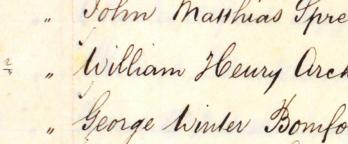 " John Matthias Spre
" William Henry Arch
" George Winter Bomfo